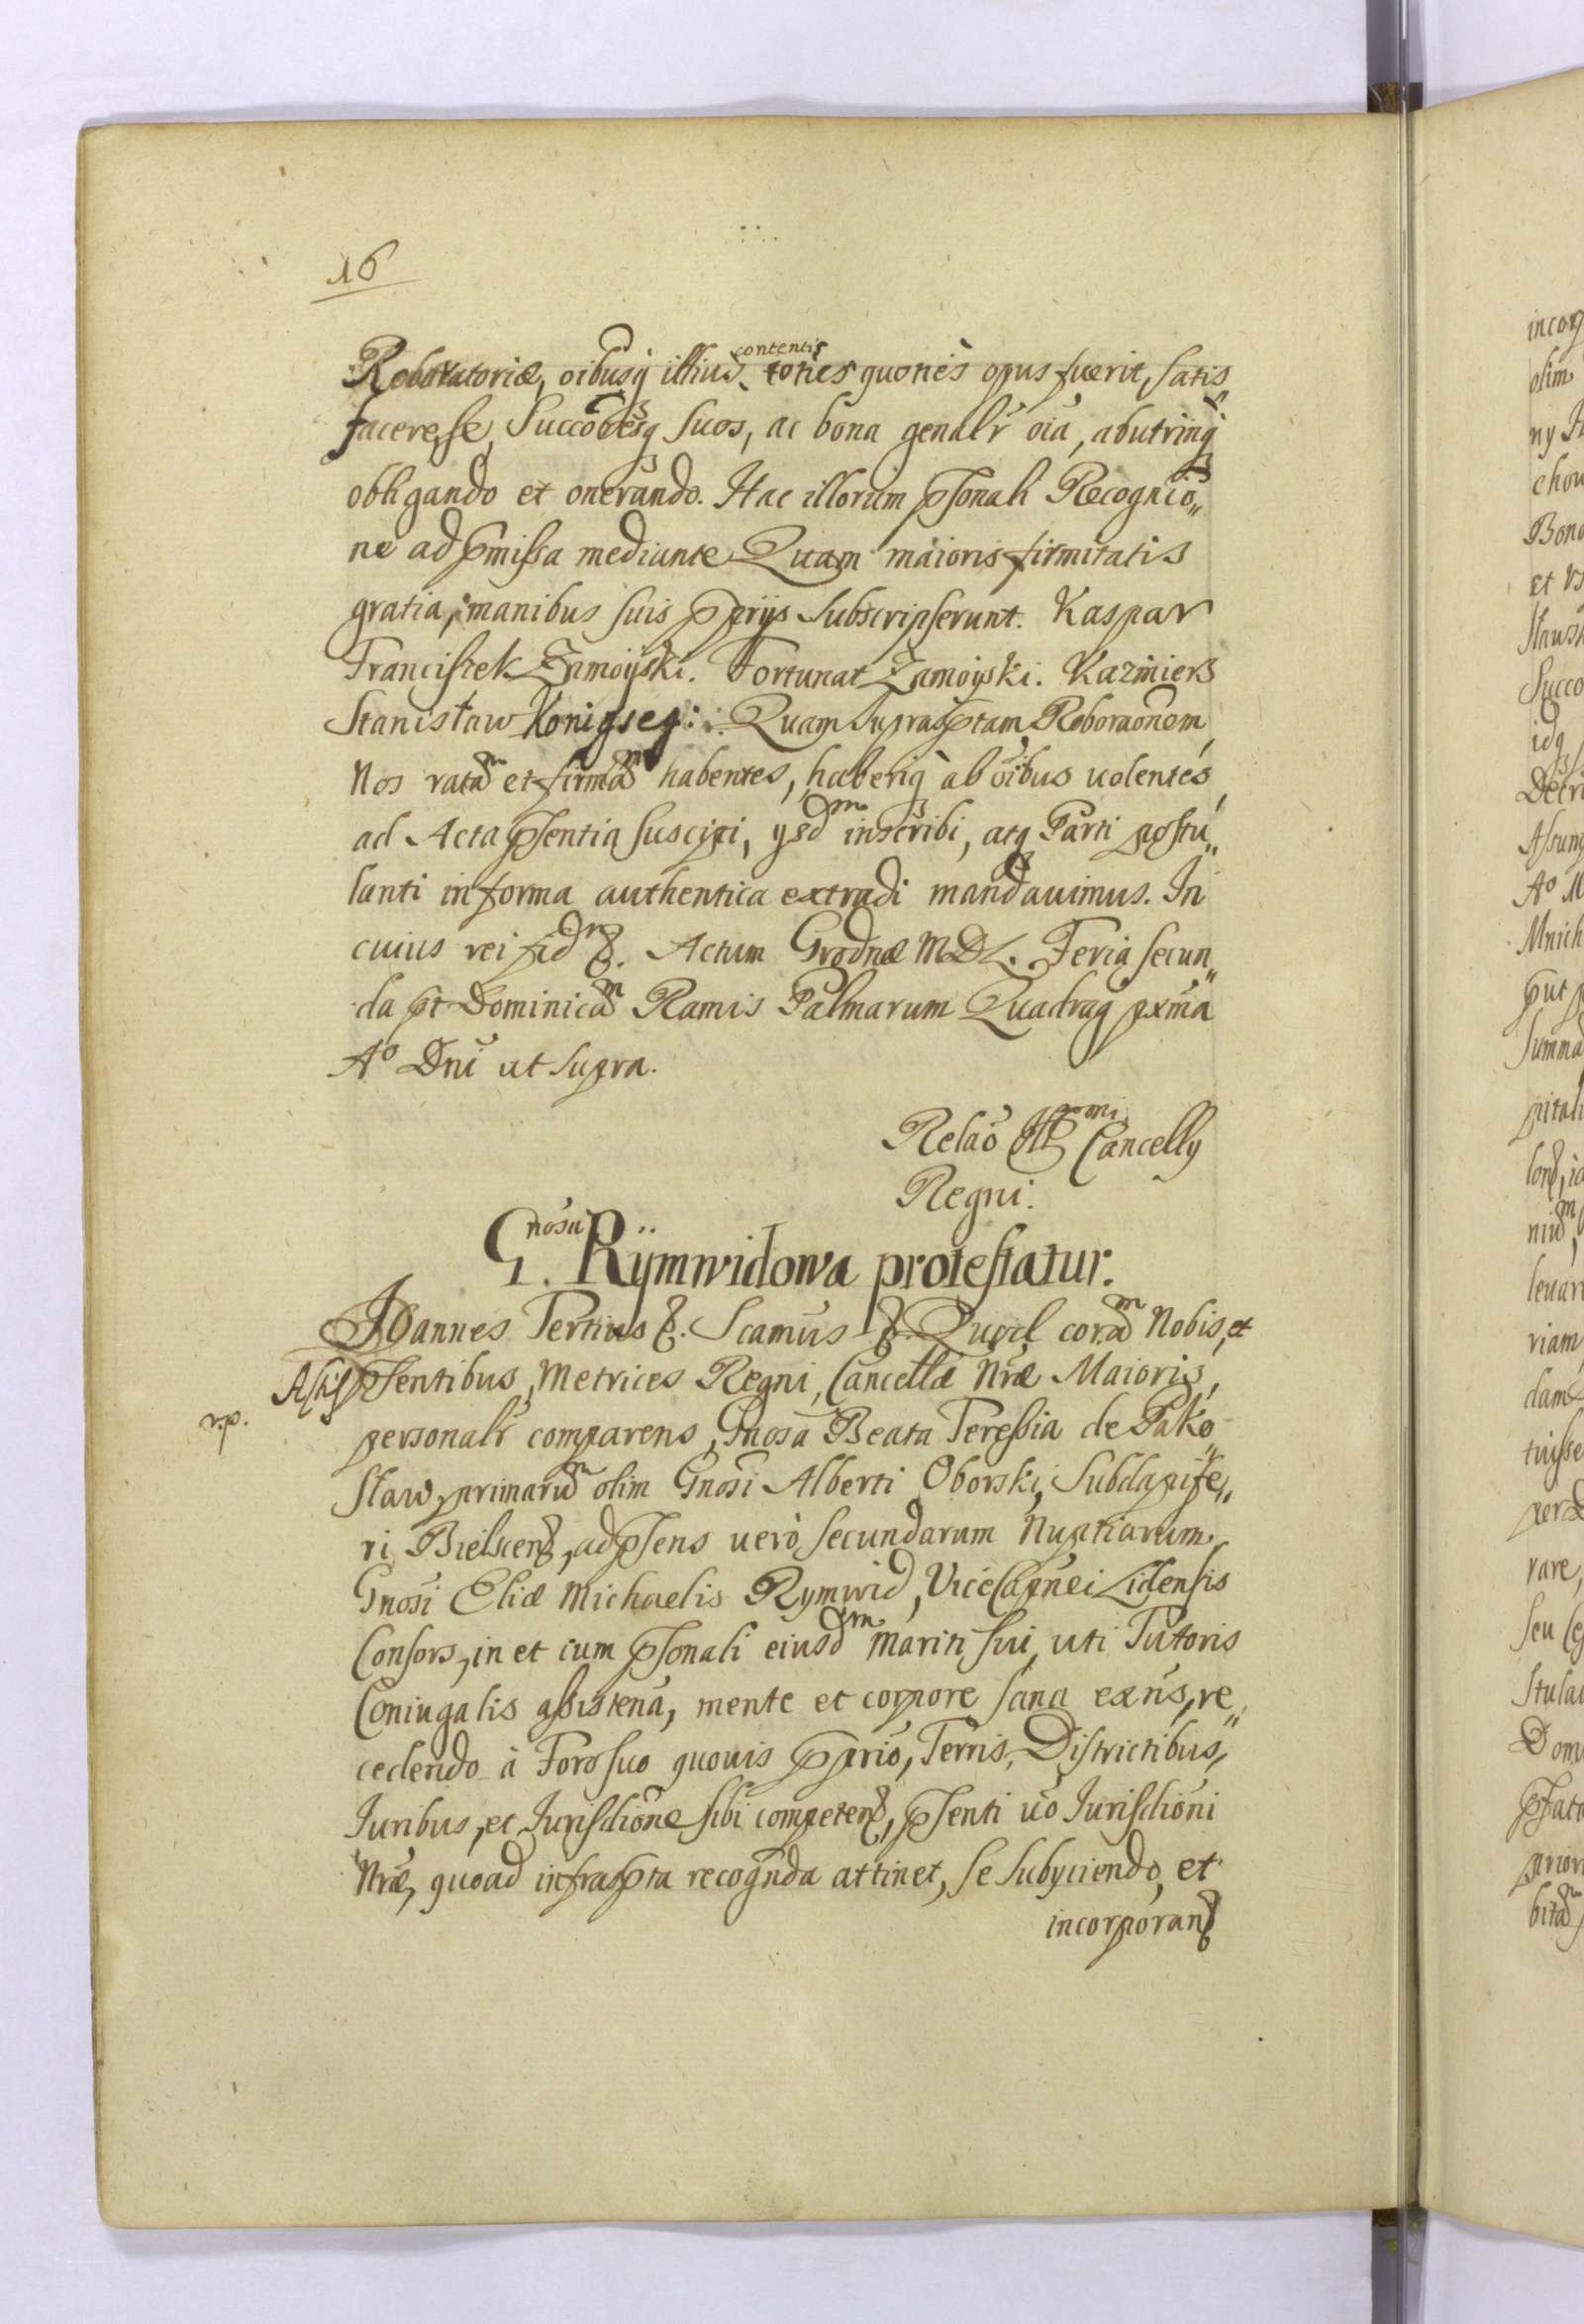 16
Roboratoriæ, oibusq illius contentis toties quoties opus fuerit, satis
facere, se, Succōresq suos, ac bona genalr oia, abutrinq
obligando et onerando. Hac illorum psonali Recognitio„
ne ad pmissa mediante Quam maioris firmitatis
gratia, manibus suis pprijs subscripserunt. Kaspar
Franciszek Zamoyski. Fortunat Zamoyski. Kazimierz
Stanisław Konigseg: Quam suprasptam Roboraonem,
Nos ratam et firmam habentes, haberiq ab oibus uolentes,
ad Acta psentia suscipi, ysdm inscribi, atq Parti postu„
lanti in forma authentica extradi mandauimus. In
cuius rei fidm &. Actum Grodnæ MDL. Feria secun„
da pt Dominicam Ramis Palmarum Quadrag pxma
Aº Dni ut supra.
Relaō Cancelly
Regni.
G.nosa Rÿmwidowa protestatur.
Joannes Tertius &. Scamus &. Quod coram Nobis, et
Actis psentibus, Metrices Regni, Cancellæ Nræ Maioris,
personalr comparens, Gnosa Beata Teressia de Pako„
sław, primarum olim Gnosi Alberti Oborski, Subdapife„
ri Bielscen, ad psens uerò, secundarum Nuptiarum,
Gnosi Eliæ Michaelis Rymwid, ViceCapnei Lidensis
Consors, in et cum psonali eiusdm Mariti sui, uti Tutoris
Coniugalis assistena, mente et corpore sana exns, re„
cedendo à Foro suo quouis pprio, Terris, Districtibus,
Iuribus, et Jurisdione sibi competen, psenti uo Jurisdioni
Nræ, quoad infraspta recognda attinet, se subyciendo, et
incorporan